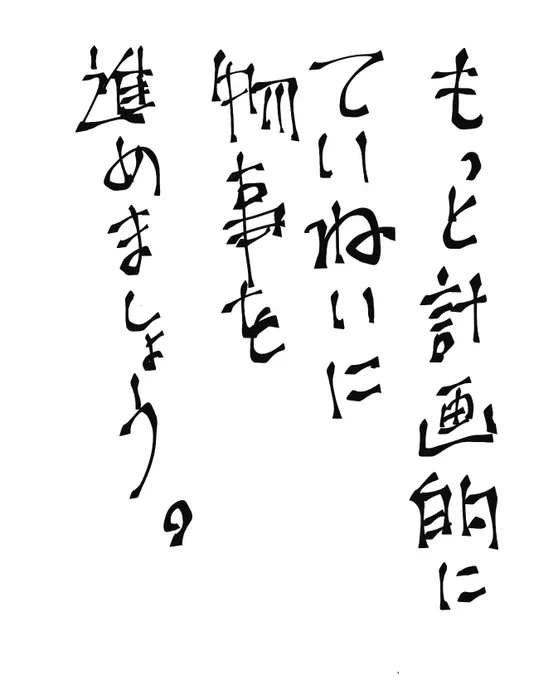 もっと計画的に
ていねいに
物事を
進めましょう。